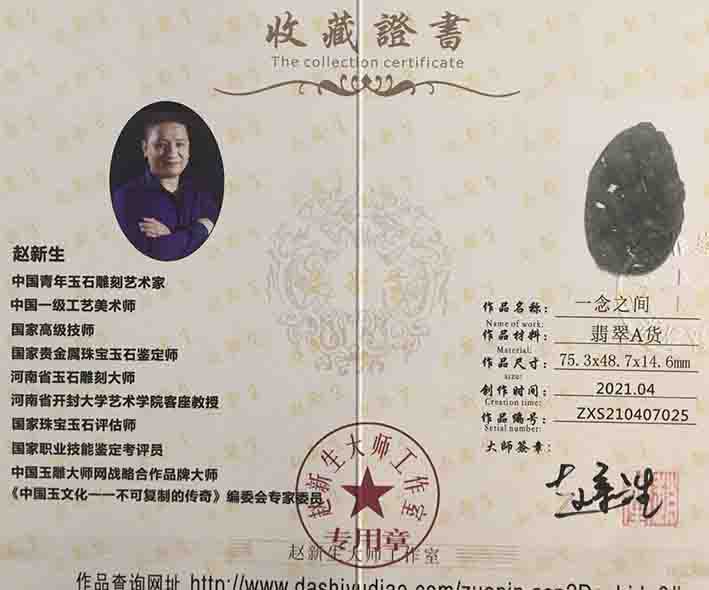 收藏證書
The collection certificate
赵新生
中国青年玉石雕刻艺术家
中国一级工艺美术师
国家高级技师
国家贵金属珠宝玉石鉴定师
河南省玉石雕刻大师
河南省开封大学艺术学院客座教授
国家珠宝玉石评估师
国家职业技能鉴定考评员
中国玉雕大师网战略合作品牌大师
《中国玉文化——不可复制的传奇》编委会专家委员
作品名称: 一念之间
Name of work:
作品材料: 翡翠A货
Material:
作品尺寸: 75.3x48.7x14.6mm
size:
创作时间: 2021.04
Creation time:
作品编号: ZXS210407025
Serial number:
大师签章:
赵新生
赵新生大师工作室
专用章
赵新生大师工作室
作品查询网址 http://www.dashiyudiao.com/